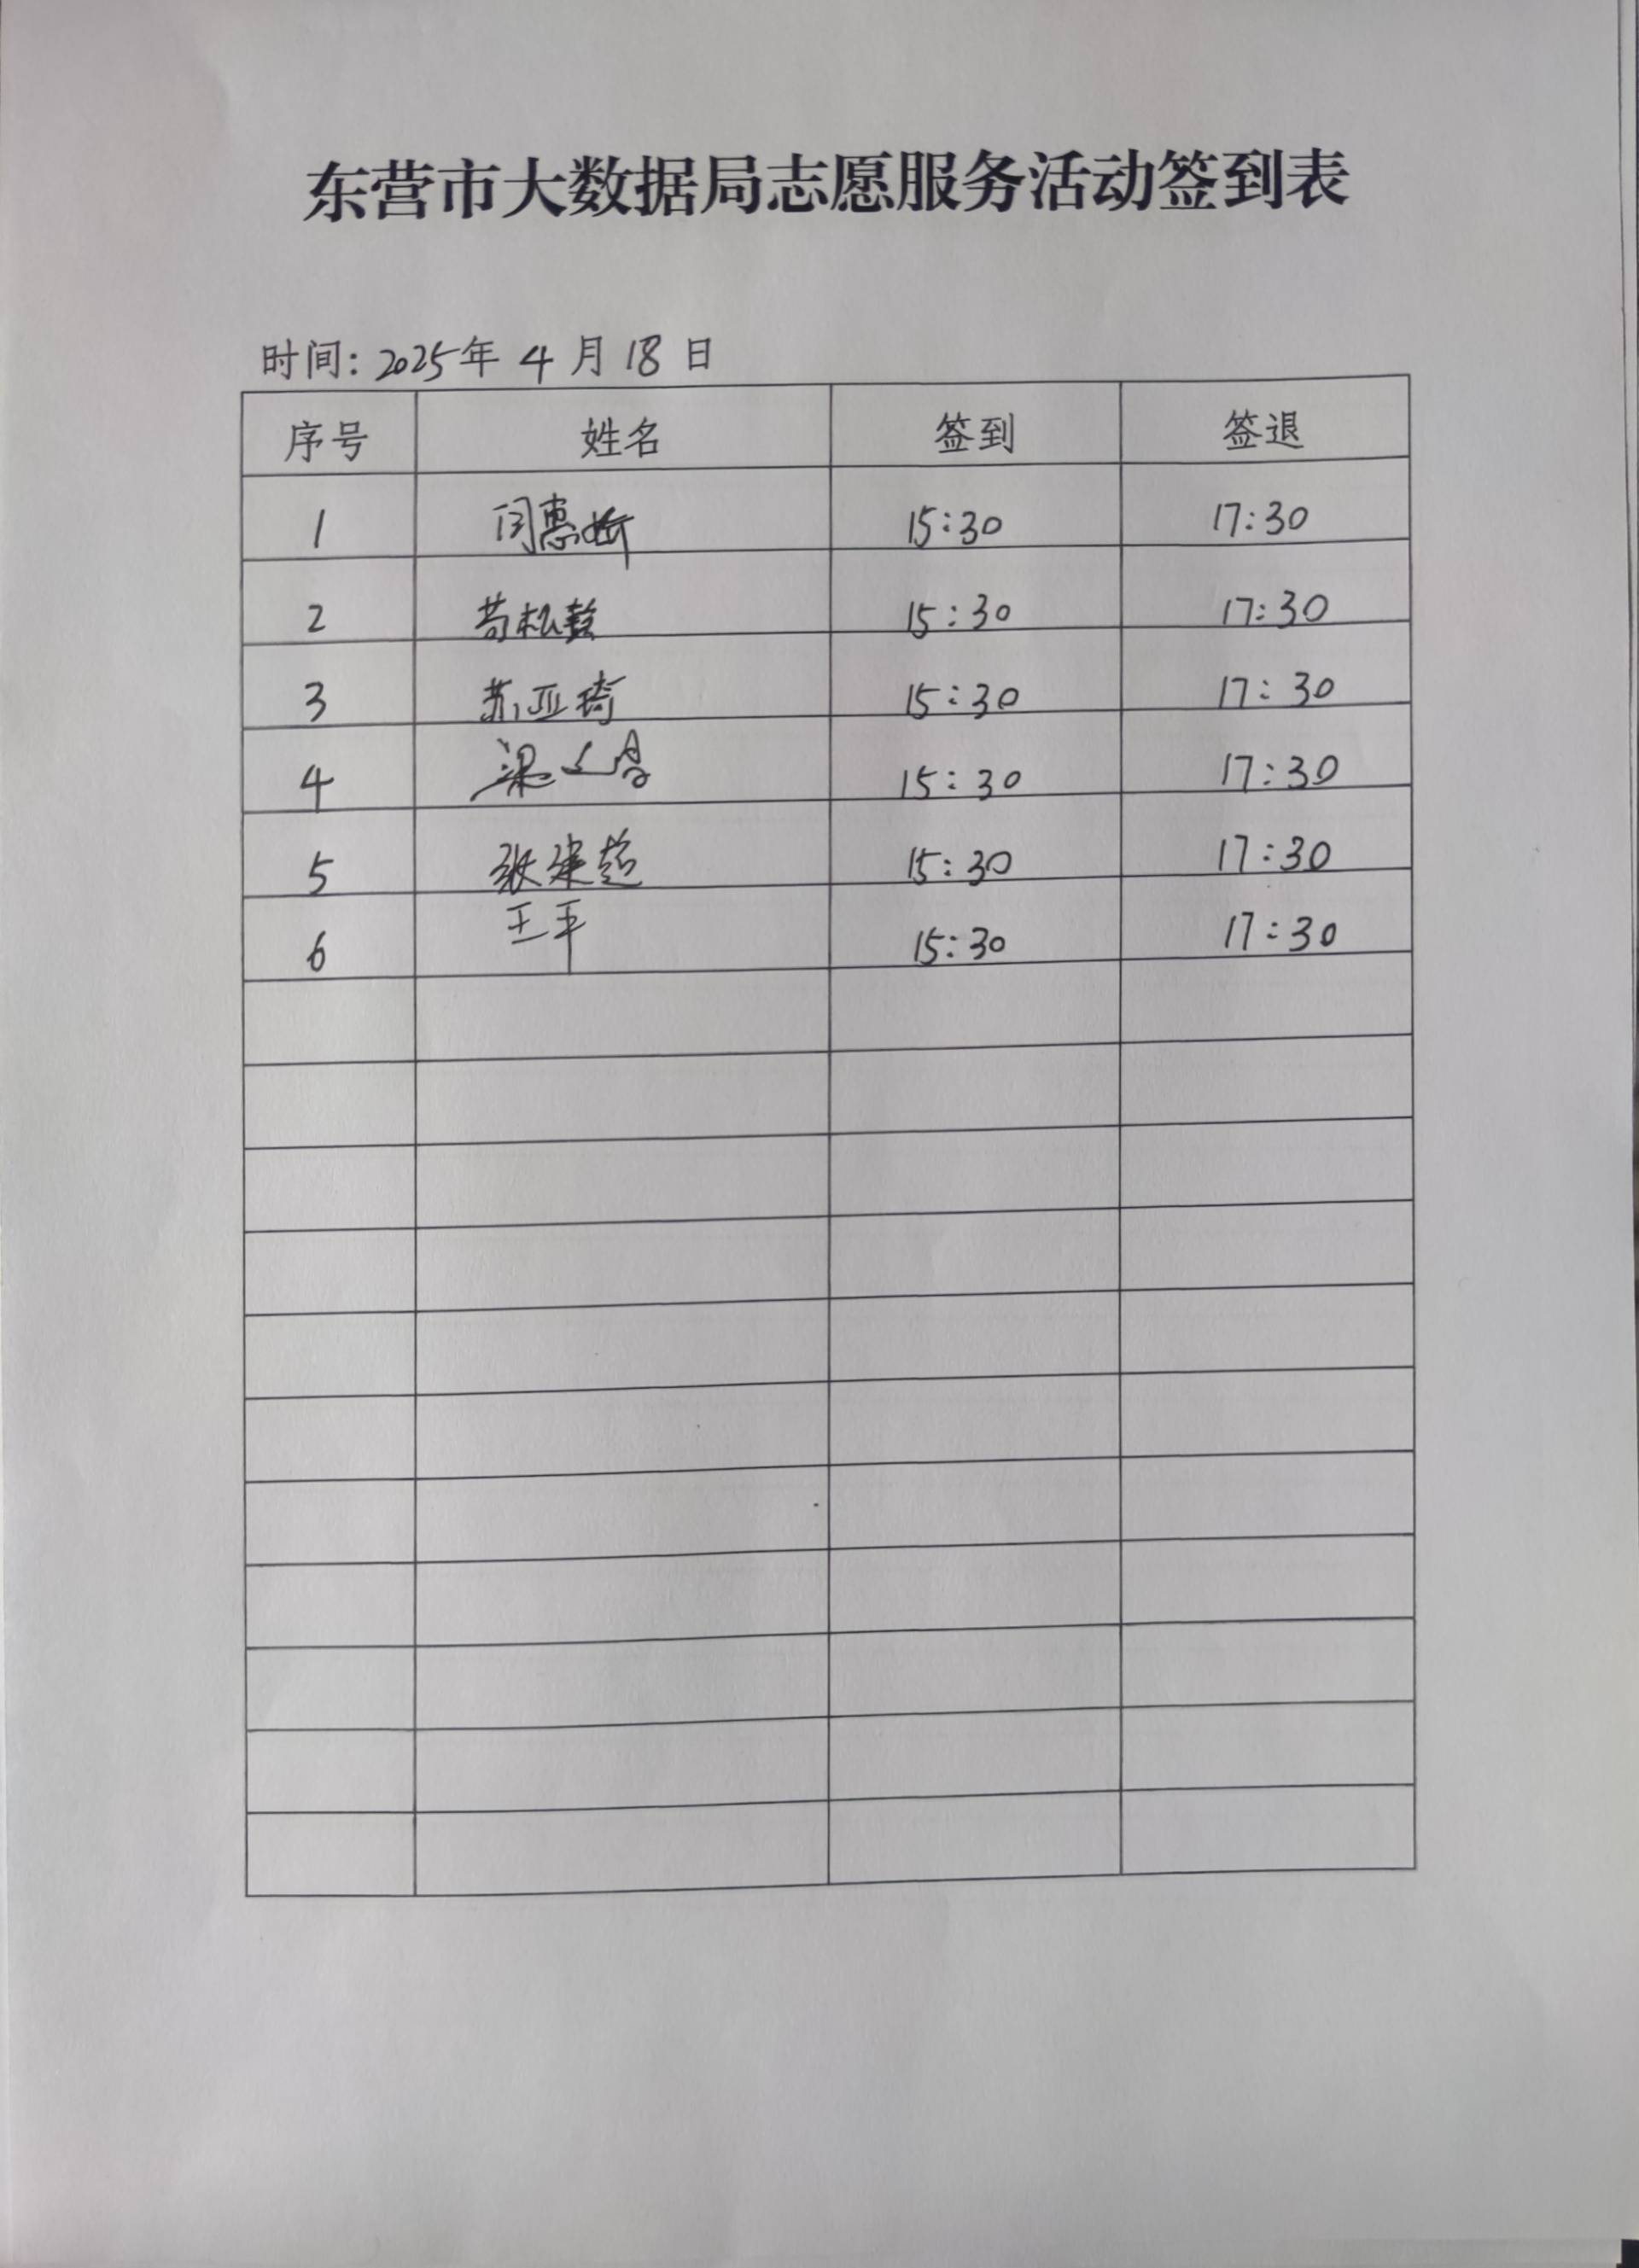 东营市大数据局志愿服务活动签到表
时间: 2025年 4 月 18 日
序号 姓名 签到 签退
1 闫惠 15:30 17:30
2 苟松 15:30 17:30
3 苏亚琦 15:30 17:30
4 梁 15:30 17:30
5 张建超 15:30 17:30
6 王平 15:30 17:30